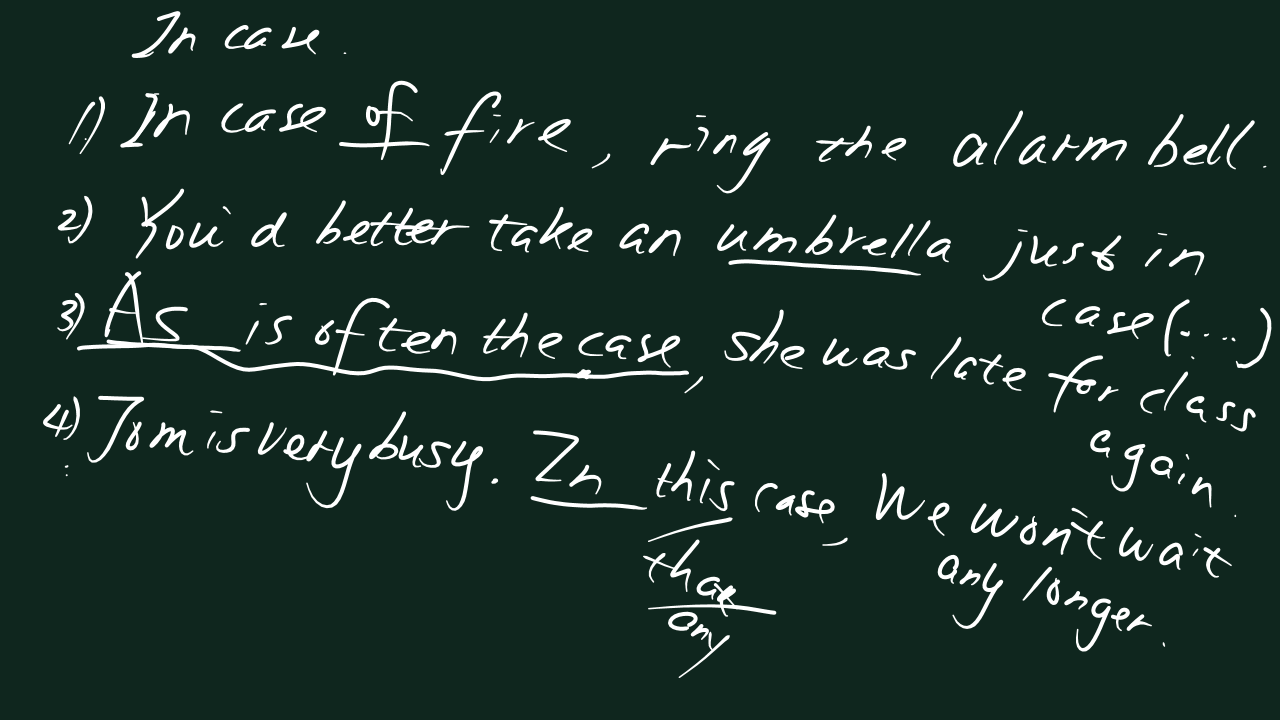 In case.
1) In case of fire, ring the alarm bell.
2) You'd better take an umbrella just in
case (....)
3) As is often the case, she was late for class
again.
4) Tom is very busy. In this case, We won't wait
any longer.
that
any